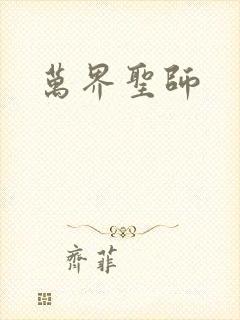 萬界聖師
齊菲